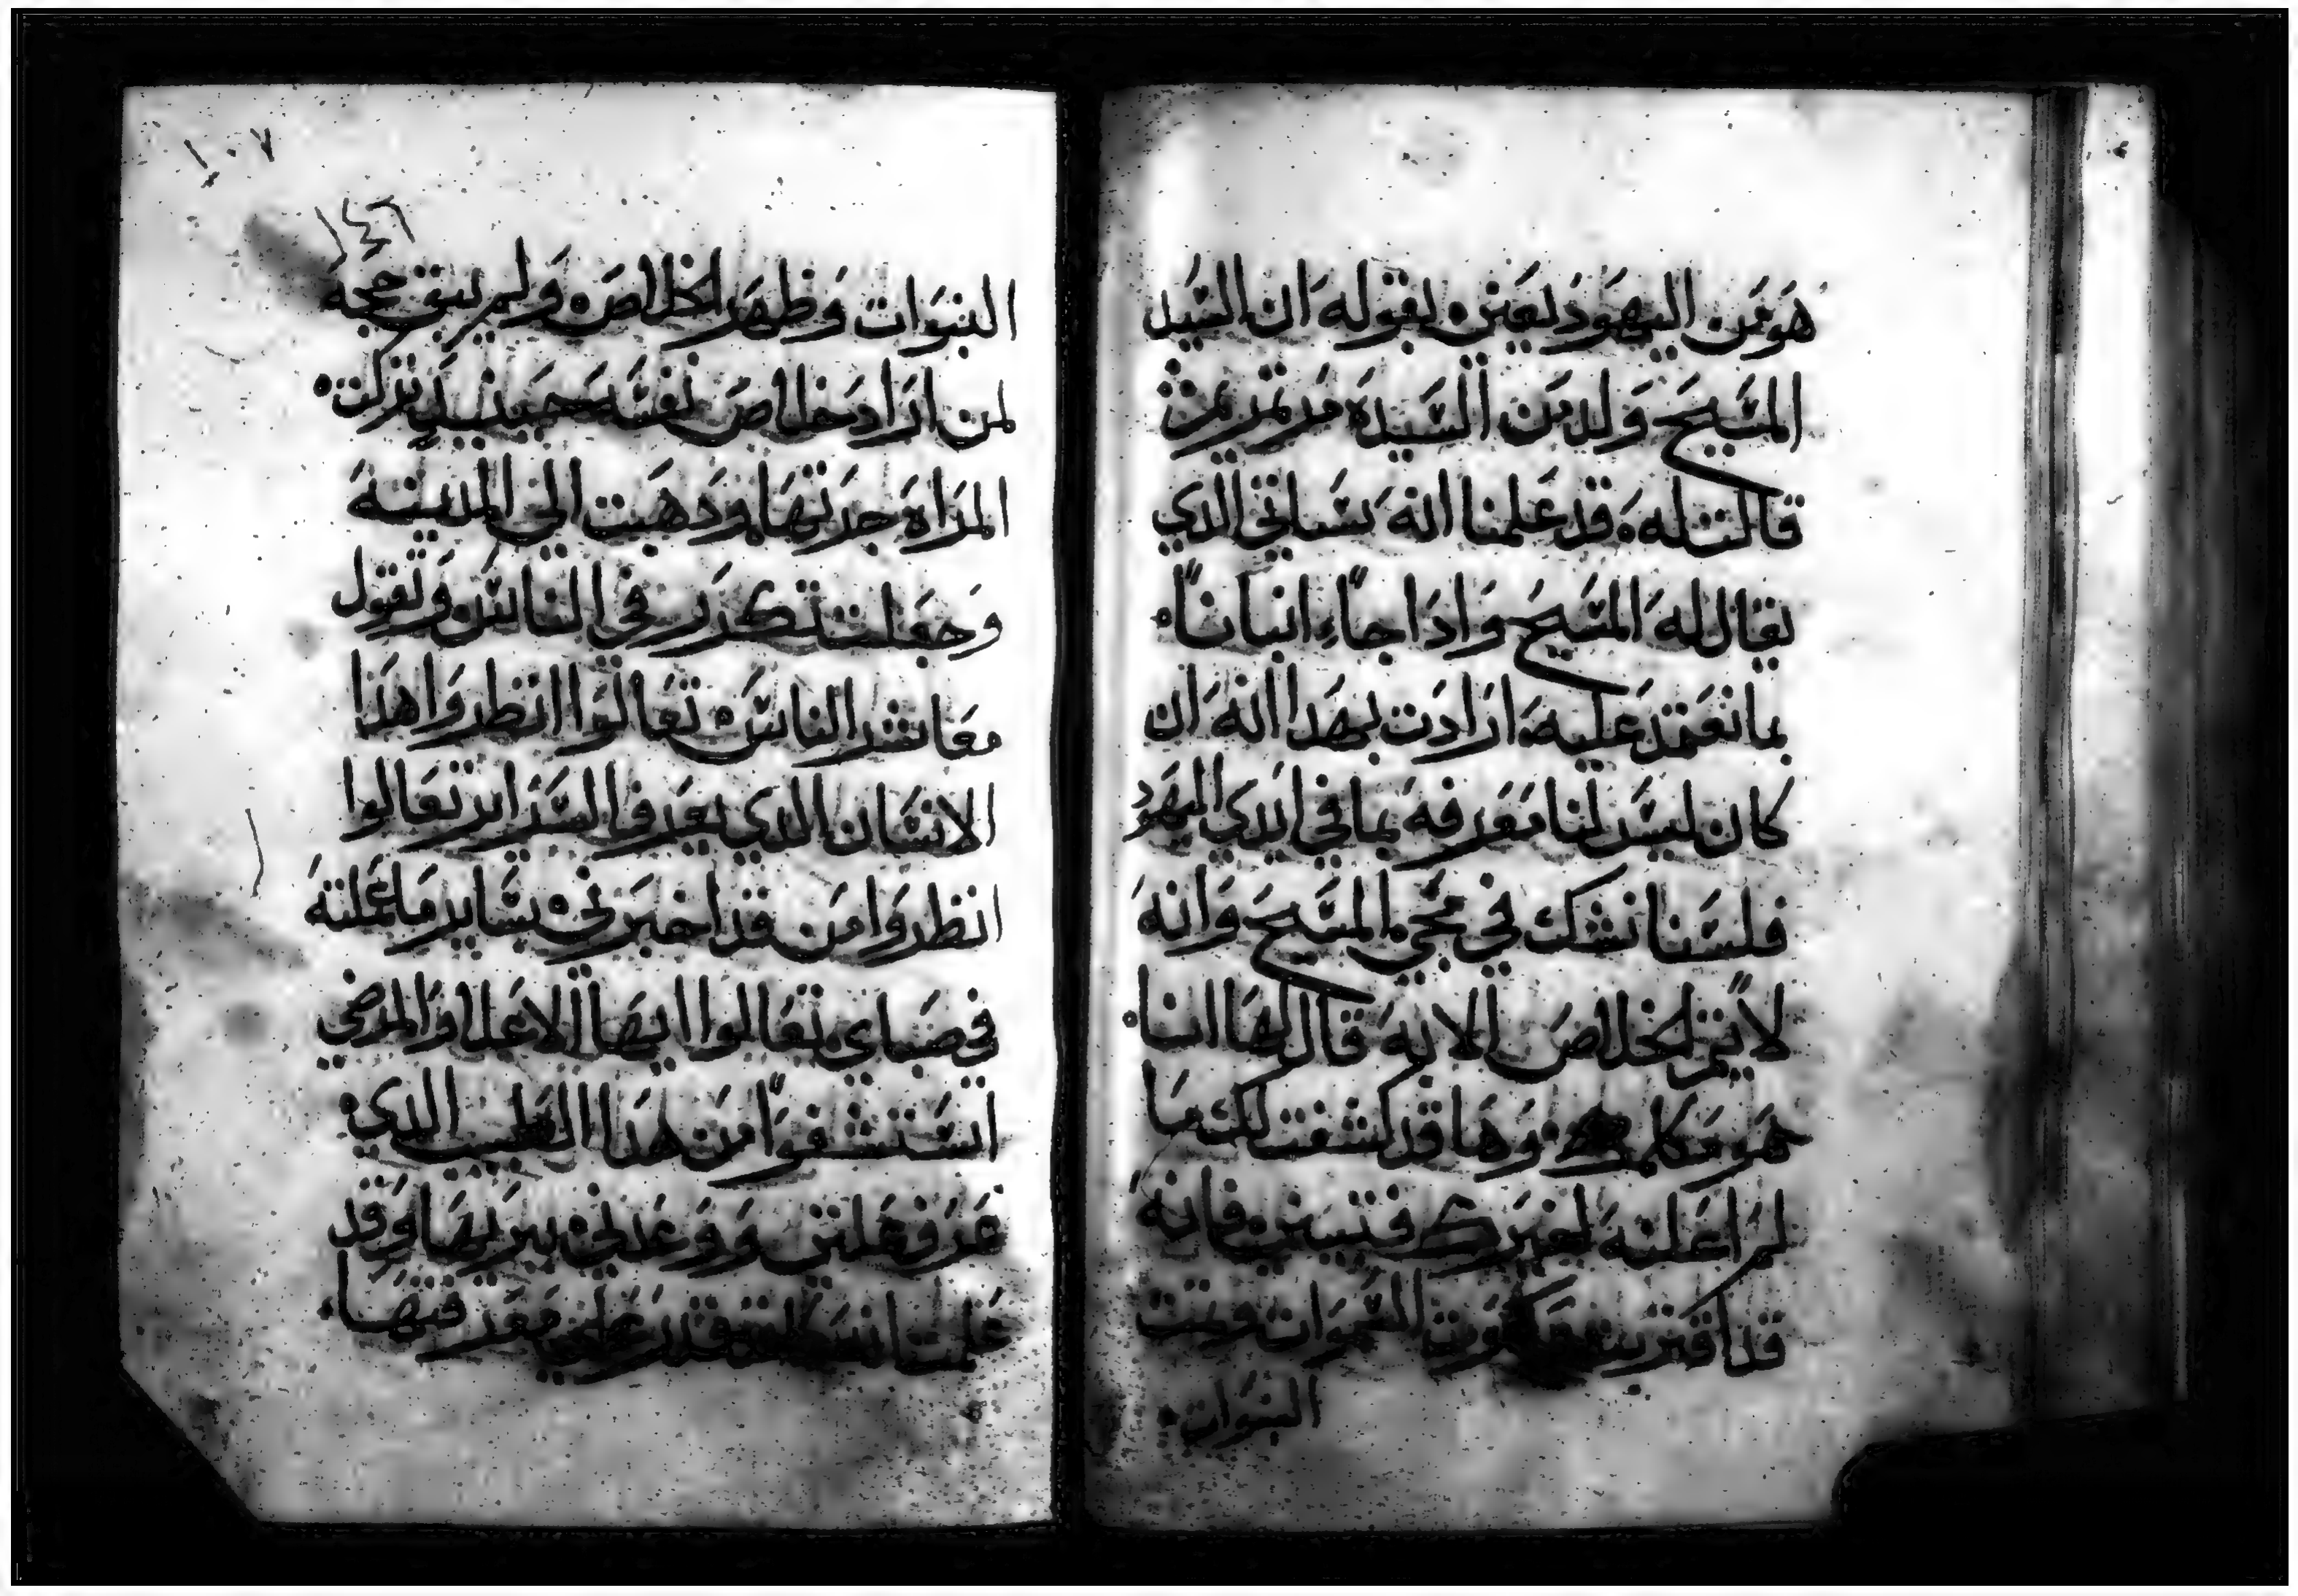 هو من اليهود يعني بقوله ان السيد
المسيح ولد من السيدة مرتمريم
قالت له قد علمنا انه سياتي الدي
يقال له المسيح وادا جاء انبانا
بما نعتمد عليه ارادت بهدا انه ان
كان ليس لنا معرفه بما في ايدي اليهود
فلسنا نشك في مجي المسيح وانه
لا يتم الخلاص الا به قال لها انا
هو مكلمك وها قد كشفت لك ما
لم اعلنه لغيرك فتيقني فانه
قد اقتربت ملكوت السموات وتمت
النبوات
١٠٧
١٤٦
النبوات وظهر الخلاص ولم يبق حجه
لمن اراد خلاص نفسه حينيد تركت
المراه جرتها ودهبت الي المدينه
وجعلت تكرر في الناس وتقول
معاشر الناس تعالوا انظروا هدا
الانسان الدي يعرف السراير تعالوا
انظروا من قد اخبرني بساير ما عملته
في صباي تعالوا ايها الاعلا والمرضي
استشفوا من هدا الطبيب الدي
عرف علتي ووعدني ببريها وقد
علمت انه يقدر علي معرفتها